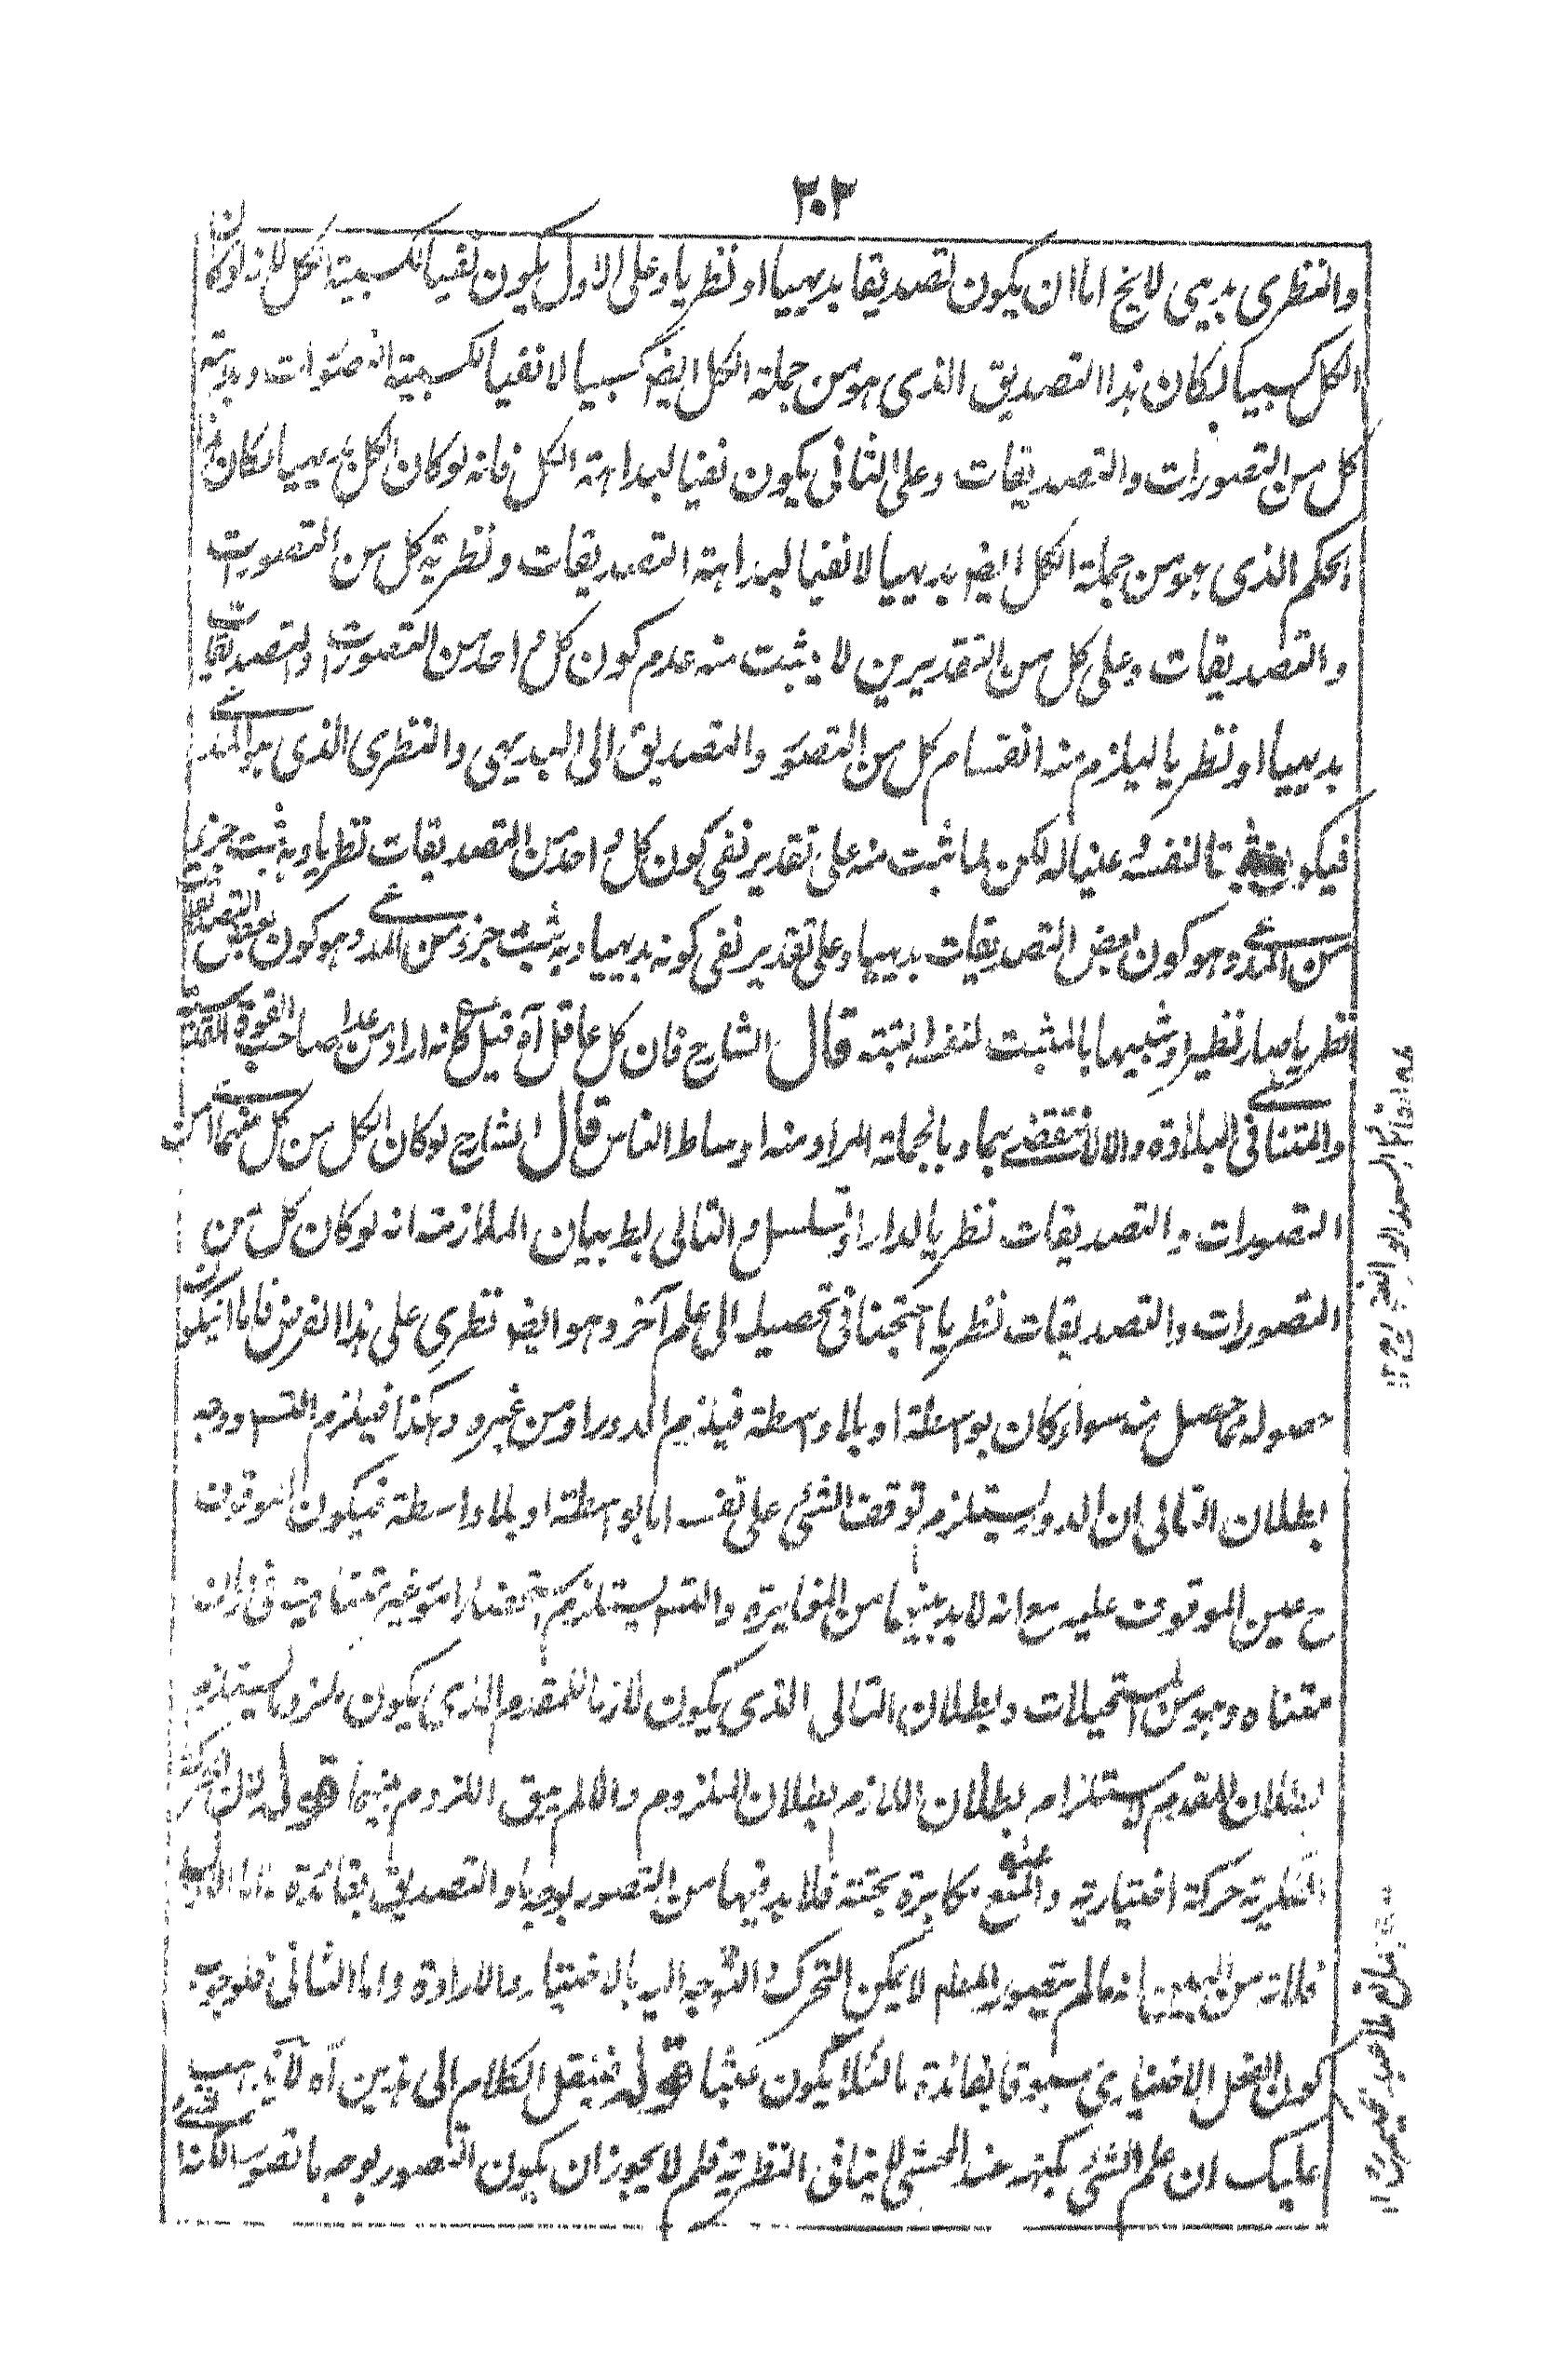 ٢٠٣
والنظرى بديهى لايخ اما ان يكون تصديقا بديهيا او نظريا وعلى الاول يكون نفيا لكسبية الكل لانه لوكان
الكل كسبيا لكان هذا التصديق الذى هو من جملة الكل ايضا كسبيا لا نفيا لكسبية التصورات وبداهته
كل من التصورات والتصديقات وعلى الثانى يكون نفيا لبداهة الكل فانه لوكان الكل بديهيا لكان هذا
الحكم الذى هو من جملة الكل ايضا بديهيا لا نفيا لبداهة التصديقات ونظرية كل من التصورات
والتصديقات وعلى كل من التقديرين لا يثبت منه عدم كون كل واحد من التصورات والتصديقات
بديهيا او نظريا ليلزم منه انقسام كل من التصور والتصديق الى البديهى والنظرى الذى هو المدعى
فيكون مثبتا لنفسه عنياله لكن لما ثبت منه على تقدير نفى كون كل واحد من التصديقات نظريا وبه ثبت جزء
من المدعى وهو كون بعض التصديقات بديهيا وعلى تقدير نفى كونه بديهيا وبه ثبت جزء من المدعى وهو كون بعض التصديقات
نظريا صار نظيرا وشبيها بالمثبت لنفسه البتة قال الشارح فان كل عاقل آه قيل كانه اراد من عدا صاحب القوة القدسية
والمتناهى فى البلادة والا لانتقضى بهما وبالجملة المراد منه اوساط الناس قال الشارح لوكان الكل من كل منهما اى من
التصورات والتصديقات نظريا لدار او تسلسل والتالى بط بيان الملازمة انه لوكان كل من
التصورات والتصديقات نظريا احتجنا فى تحصيله الى علم آخر وهو ايضا نظرى على هذا الفرض فاما ان يكون
حصوله مما حصل منه سواء كان بواسطة او بلا واسطة فيلزم الدور او من غيره وهكذا فيلزم التس ووجه
بطلان التالى ان الدور يستلزم توقف الشئ على نفسه اما بواسطة او بلا واسطة فيكون الموقوف
ح عين الموقوف عليه مع انه لابد بينهما من المغايرة والتس يستلزم استحضار امور غير متناهية فى زمان
متناه وهو من المستحيلات وبطلان التالى الذى يكون لازما للمقدم الذى يكون ملزوما يستلزم
بطلان المقدم لاستلزام بطلان اللازم بطلان الملزوم والا لم يبق اللزوم بينهما قوله لان الحركة
النظرية حركة اختيارية والمنع مكابرة بحتة فلابد فيها من التصور بوجه ما والتصديق بفائدة ما اما الاول
فلانه من البين انه مالم يتصور المطلوب لا يمكن التحرك والتوجه اليه بالاختيار والارادة واما الثانى فلوجوب
كون الفعل الاختيارى مسبوقا بفائدة ما لئلا يكون عبثا قوله فينقل الكلام الى هذين آه لا يذهب
عليك ان علم الشئ بكنهه عند المحشى لا ينافى النظرية فلم لا يجوز ان يكون التصور بوجه ما تصورا